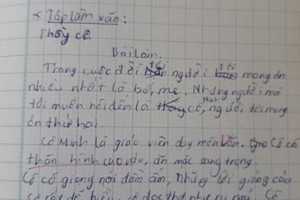 * Tập làm văn:
Thầy cô
Bài làm.
Trong cuộc đời tôi người tôi mang ơn
nhiều nhất là bố, mẹ. Nhưng người mà
tôi muốn nói đến là cô, người tôi mang
ơn thứ hai.
Cô Minh là giáo viên dạy môn văn. Cô có
thân hình cao, ăn mặc sang trọng.
Cô có giọng nói đầm ấm, Những lời giảng của